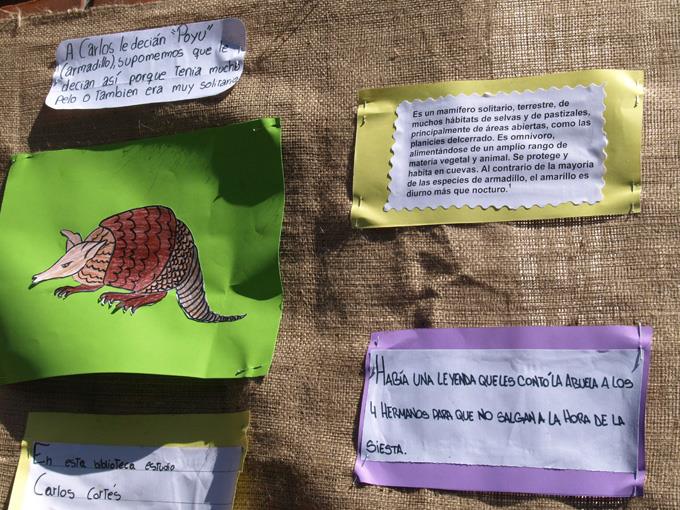 A Carlos le decián "Poyu"
(armadillo), suponemos que le
decian así porque Tenía mucho
Pelo o Tambien era muy solitario
Es un mamífero solitario, terrestre, de
muchos hábitats de selvas y de pastizales,
principalmente de áreas abiertas, como las
planicies delcerrado. Es omnívoro,
alimentándose de un amplio rango de
materia vegetal y animal. Se protege y
habita en cuevas. Al contrario de la mayoría
de las especies de armadillo, el amarillo es
diurno más que nocturo.¹
HABÍA UNA LEYENDA QUE LES CONTÓ LA ABUELA A LOS
4 HERMANOS PARA QUE NO SALGAN A LA HORA DE LA
SIESTA.
En esta biblioteca estudio
Carlos Cortés